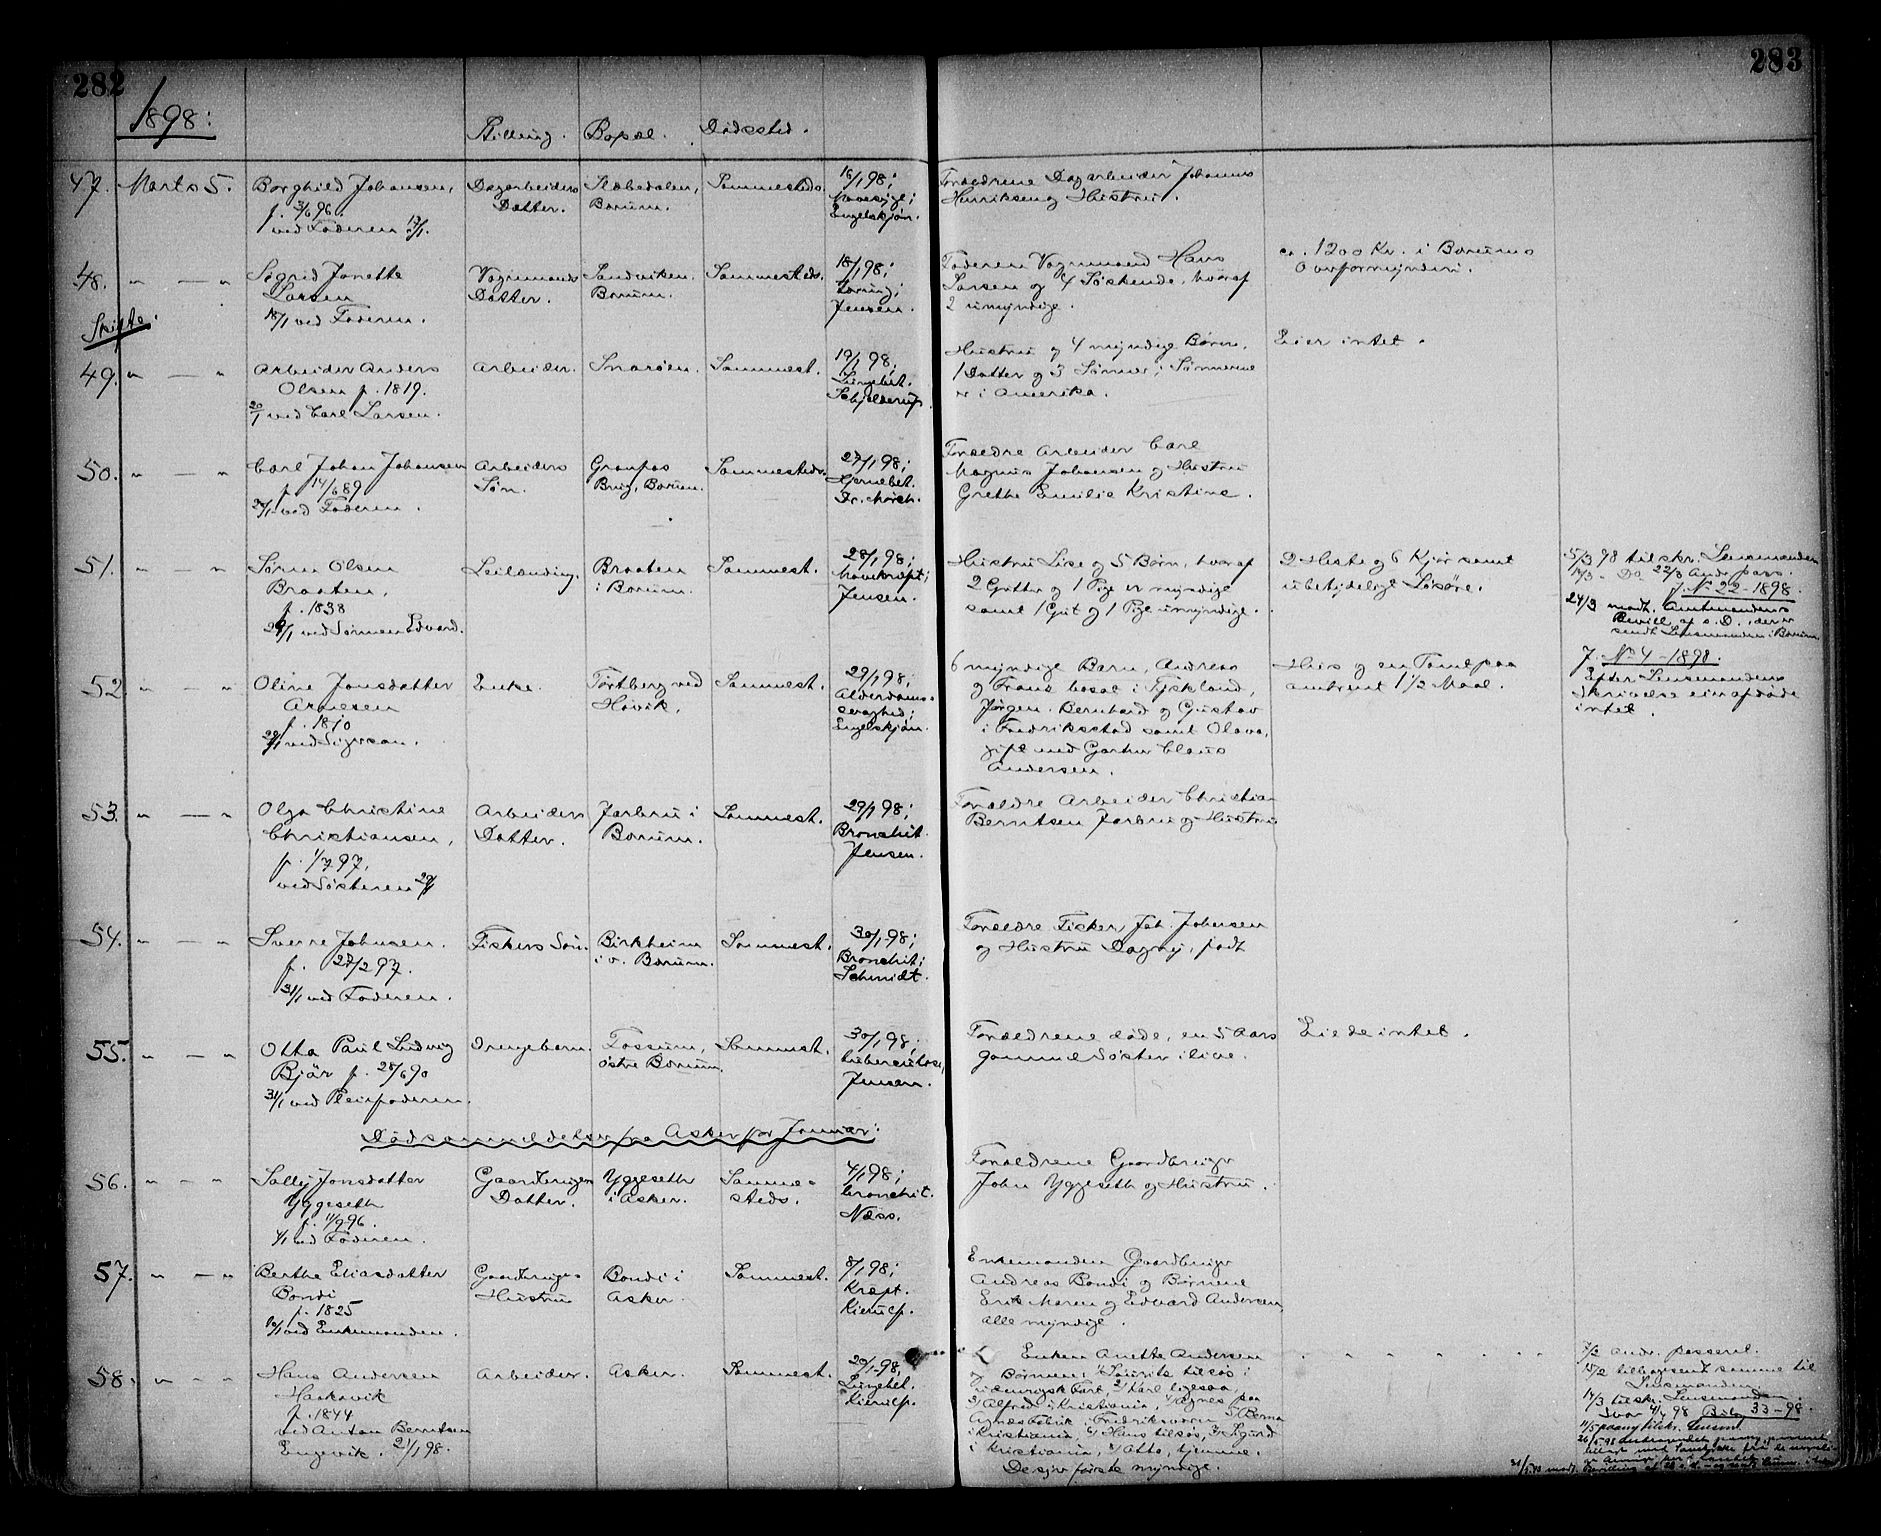 282
283
1898:
Stilling. Bopæl. Dødssted.
47. Marts 5. Borghild Johansen, Dagarbeiders Sammesteds. 16/1 98; Forældrene Dagarbeider Johannes
f. 3/6 96. Datter. Bærum. Engelskjøn. Henriksen og Hustru.
ved Faderen 17/1.
48. " — " Sigrid Janette Vognmands Sandviken Sammesteds. 18/1 98; Faderen Vognmand Hans ca. 1200 Kr. i Bærums
Larsen Datter. Bærum. Jensen. Larsen og 4 Søskende, hvoraf Overformynderi.
18/1 ved Faderen. 2 umyndige.
Skifte:
49. " — " Arbeider Anders Arbeider. Snarøen. Sammest. 19/1 98; Hustru og 4 myndige Børn, Eier intet.
Olsen f. 1819. Lungebet. 1 Datter og 3 Sønner; Sønnerne
20/1 ved Carl Larsen. Schjelderup. er i Amerika.
50. " — " Carl Johan Johansen Arbeiders Granfos Sammesteds. 27/1 98; Forældre Arbeider Carl
f. 14/6 89 Søn. Brug, Bærum. Hjernebet. Magnus Johansen og Hustru
ved Faderen. Dr. Mørch. Grethe Emilie Kristine.
51. " — " Søren Olsen Leilænding. Braaten Sammest. 28/1 98; Hustru Lise og 5 Børn, hvoraf 2 Heste og 6 Kjør samt 5/3 98 tilskr. Lensmanden
Braaten, i Bærum. Mavekræft; 2 Gutter og 1 Pige er myndige ubetydeligt Løsøre. 17/3 - Do 22/3 Andr. pass.
f. 1838 Jensen. samt 1 Gut og 1 Pige umyndige. J. No 22 - 1898.
29/1 ved Sønnen Edvard. 24/3 modt. Amtmandens
Bevill. af s. D., der er
sendt Lensmanden i Bærum
52. " — " Oline Jonsdatter Enke. Tørtberg ved Sammest. 29/1 98; 6 myndige Børn, Andreas Hus og en Tomt paa J. No 4 - 1898.
Arnesen Høvik. Alderdoms- og Frans bosat i Tyskland, omtrent 1 1/2 Maal. Efter Lensmandens
f. 1810 svaghed; Jørgen, Bernhard og Gustav Skrivelse eier afdøde
Engelskjøn. i Fredriksstad samt Olava, intet.
gift med Gartner Claus
Andersen.
53. " — " Olga Christine Arbeiders Jarbru i Sammest. 29/1 98; Forældre Arbeider Christian
Christiansen, Datter. Bærum. Bronchit. Berntsen Jarbru og Hustru
f. 1/7 97, Jensen.
ved Søsteren 29/1
54. " — " Sverre Johnsen. Fiskers Søn. Birkheim Sammest. 30/1 98; Forældre Fisker Joh. Johnsen
f. 27/2 97. i v. Bærum. Bronchit; og Hustru Dagny, født
31/1 ved Faderen. Schmidt.
55. " — " Otto Paul Ludvig Drengebarn. Fossum, Sammest. 30/1 98; Forældrene døde, en 5 Aars Eiede intet.
Bjør f. 28/6 90 østre Bærum. tuberculose, gammel Søster i live.
31/1 ved Pleiefaderen. Jensen.
Dødsanmeldelser fra Asker for Januar:
56. " — " Sally Jonsdatter Gaardbruger Yggeseth Samme- 4/1 98; Forældrene Gaardbruger
Yggeseth Datter. i Asker. steds. bronchit. John Yggeseth og Hustru.
f. 11/9 96. Næss.
ved Faderen.
57. " — " Berthe Eliasdatter Gaardbruger- Bondi i Sammest. 8/1 98; Enkemanden Gaardbruger
Bondi Hustru Asker. Kræft. Andreas Bondi og Børnene
f. 1825 Kierulf. Erik Maren og Edvard Andersen,
10/1 ved Enkemanden. alle myndige.
58. " — " Hans Andersen Arbeider. Asker. Sammest. 20/1 98, Enken Anette Andersen 7/2 andr. passeret.
f. 1844 Lungebet. og Børnene: 1) Laurits tilsøs i 15/2 tilbagesendt samme til
ved Anton Berntsen Kierulf. udenrigsk Fart, 2) Karl ligesaa, Lensmanden.
Engevik. 21/1 98. 3) Alfred i Kristiania, 4) Agnes paa 14/3 tilskr. Lensmanden.
Fabrik i Fredriksværn, 5) Berna Svar 4/4 98 Bil. 33 - 98.
i Kristiania, 6) Hans tilsøs, 7) Sigurd 11/5 paany tilskr. Lensm.
i Kristiania, 8) Otto, hjemme.
De første myndige.